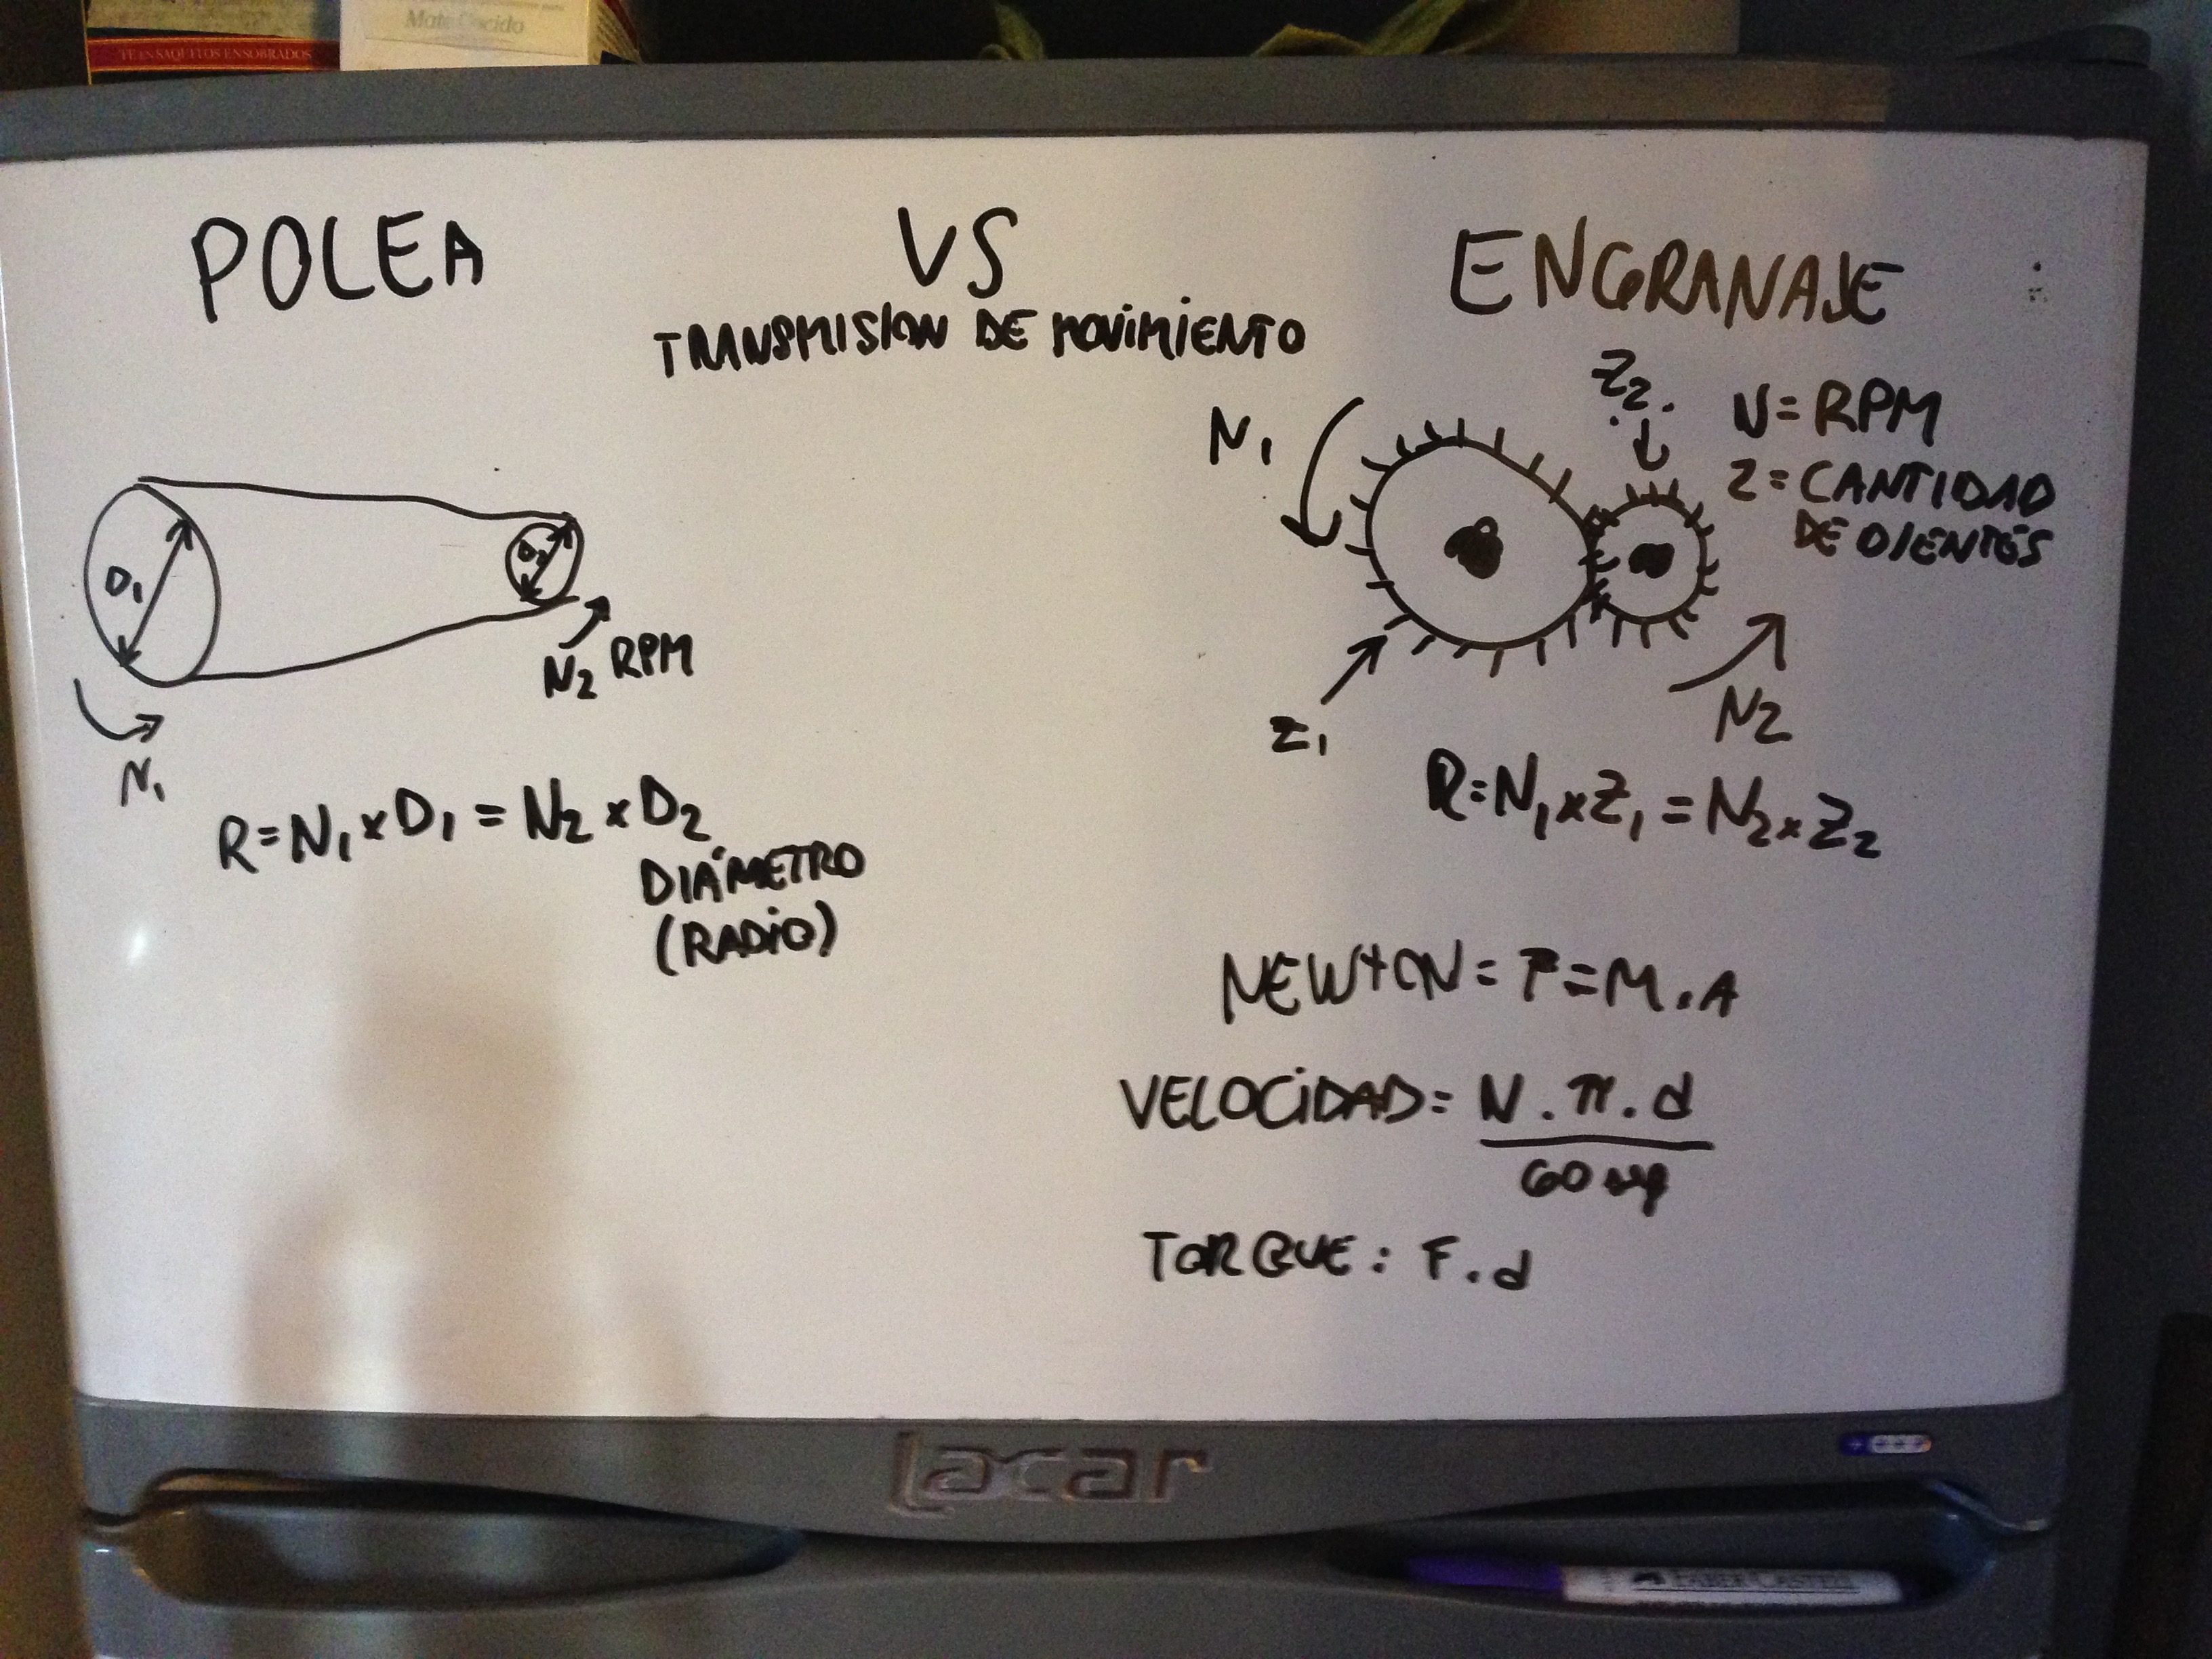 Mate Cocido
TE EN SAQUITOS ENSOBRADOS
POLEA VS ENGRANAJE
TRANSMISION DE MOVIMIENTO
D1
D2
N2 RPM
N1
R=N1xD1=N2xD2
DIÁMETRO
(RADIO)
N1
Z2
N=RPM
Z=CANTIDAD
DE DIENTES
Z1
N2
R=N1xZ1=N2xZ2
NEWTON=F=M.A
VELOCIDAD= N.π.d
60 seg
TORQUE: F.d
lacar
FABER-CASTELL